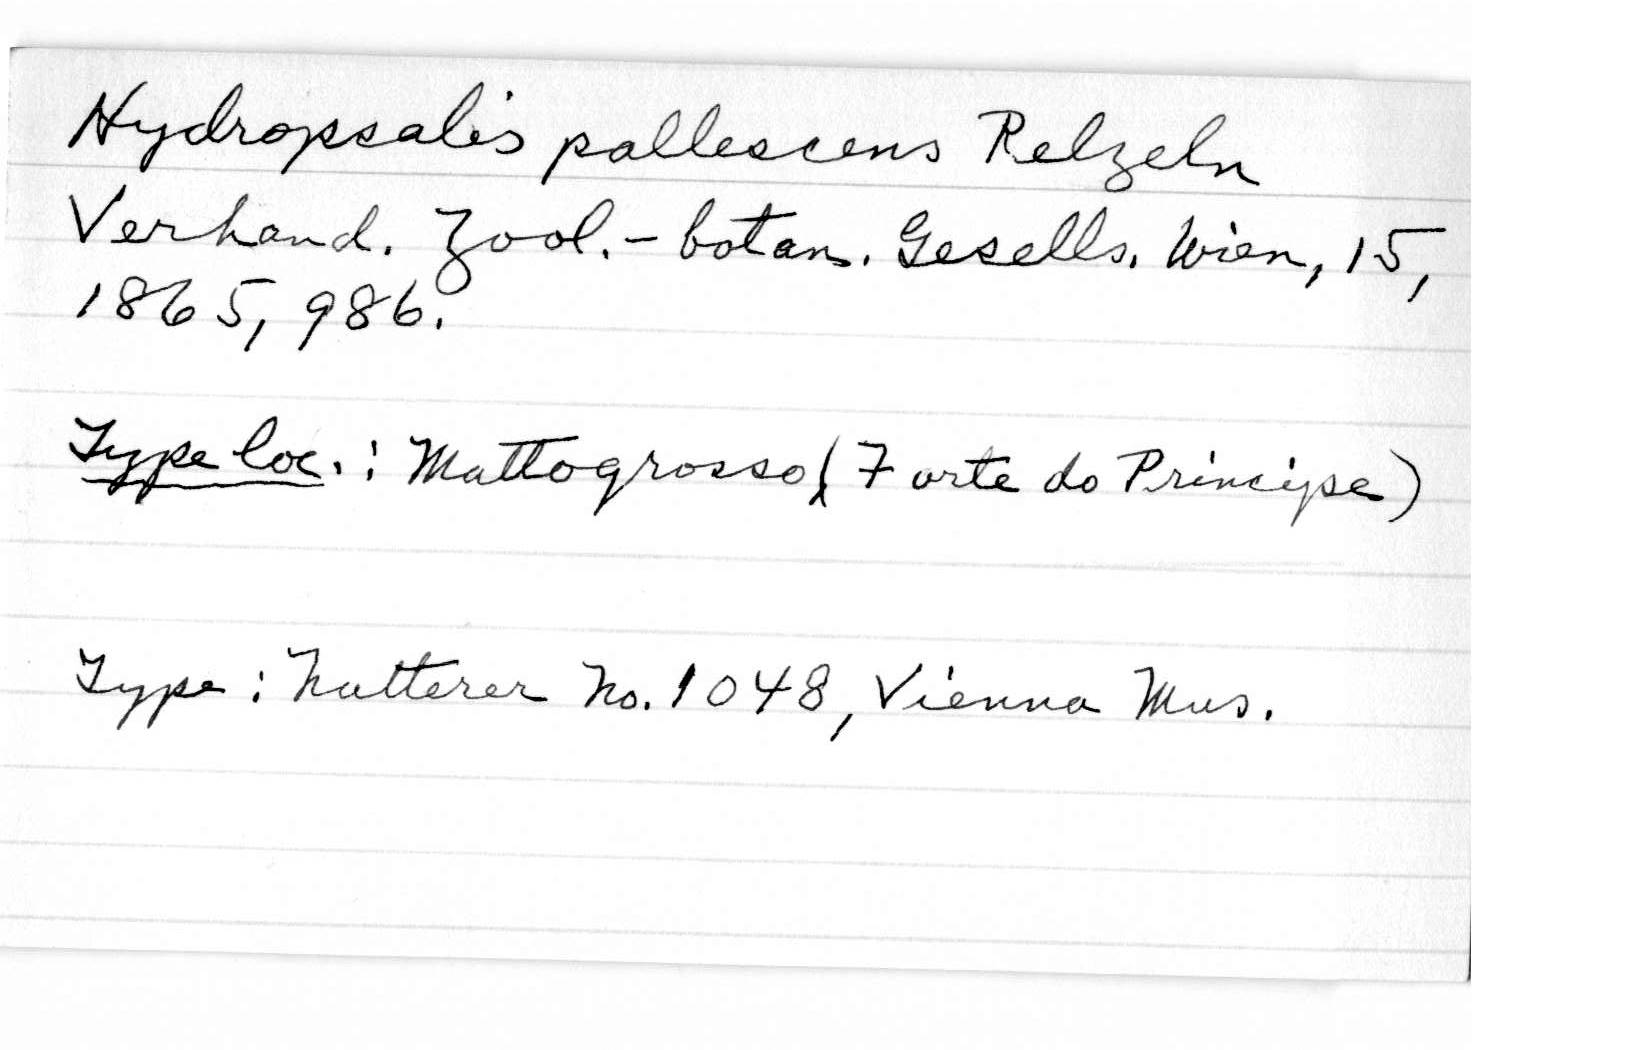 Hydropsalis pallescens Pelzeln
Verhand. Zool.-botan. Gesells. Wien, 15,
1865, 986.
Type loc.: Mattogrosso (Forte do Principe)
Type: Natterer No. 1048, Vienna Mus.